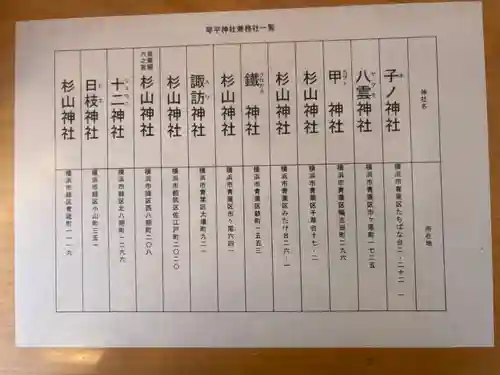 琴平神社兼務社一覧
神社名
所在地
子ノ神社
ネ
横浜市青葉区たちばな台二-二十二-一
八雲神社
ヤクモ
横浜市青葉区市ヶ尾町一七二五
甲神社
横浜市青葉区鴨志田町二九六
杉山神社
横浜市青葉区千草台十七-二
杉山神社
横浜市青葉区みたけ台二六-一
鐵神社
クロガネ
横浜市青葉区鉄町一五五三
杉山神社
横浜市青葉区市ヶ尾六四一
諏訪神社
スワ
横浜市青葉区大場町九二一
杉山神社
横浜市都筑区佐江戸町二〇二〇
武蔵國
六之宮
杉山神社
横浜市緑区西八朔町二〇八
十二神社
横浜市緑区北八朔町一二六六
日枝神社
ヒエ
横浜市緑区小山町三五一
杉山神社
横浜市緑区青砥町一一一六